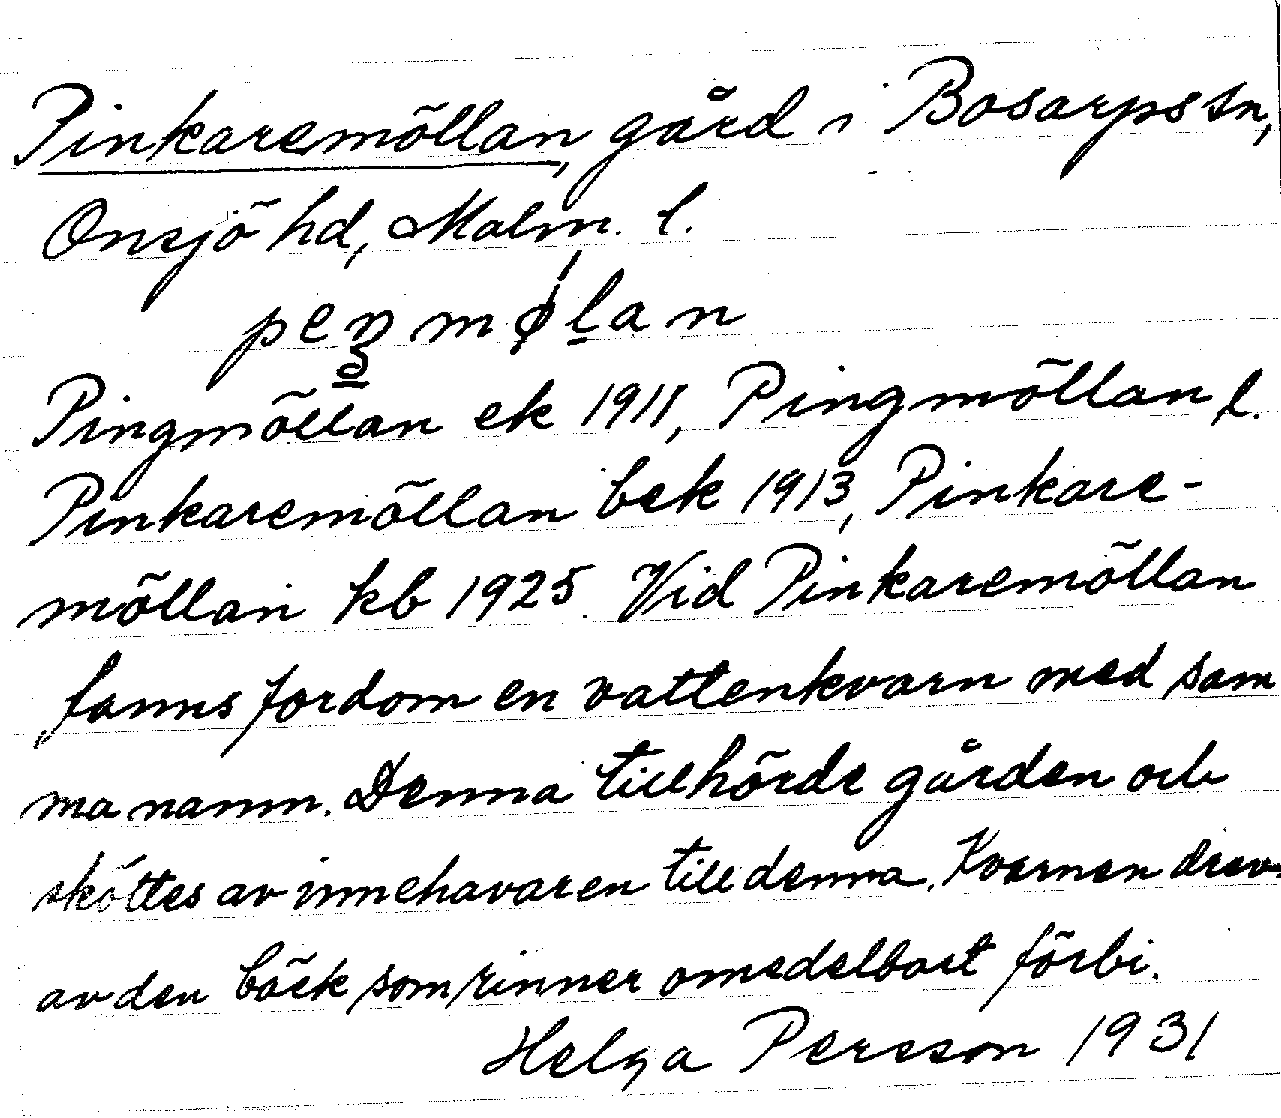 Pinkaremöllan, gård i Bosarps sn,
Onsjö hd, Malm. l.
Pingmöllan ek 1911, Pingmöllan l.
Pinkaremöllan bek 1913, Pinkare-
möllan kb 1925. Vid Pinkaremöllan
fanns fordom en vattenkvarn med sam
ma namn. Denna tillhörde gården och
sköttes av innehavaren till denna. Kvarnen drevs
av den bäck som rinner omedelbart förbi.
Helga Persson 1931